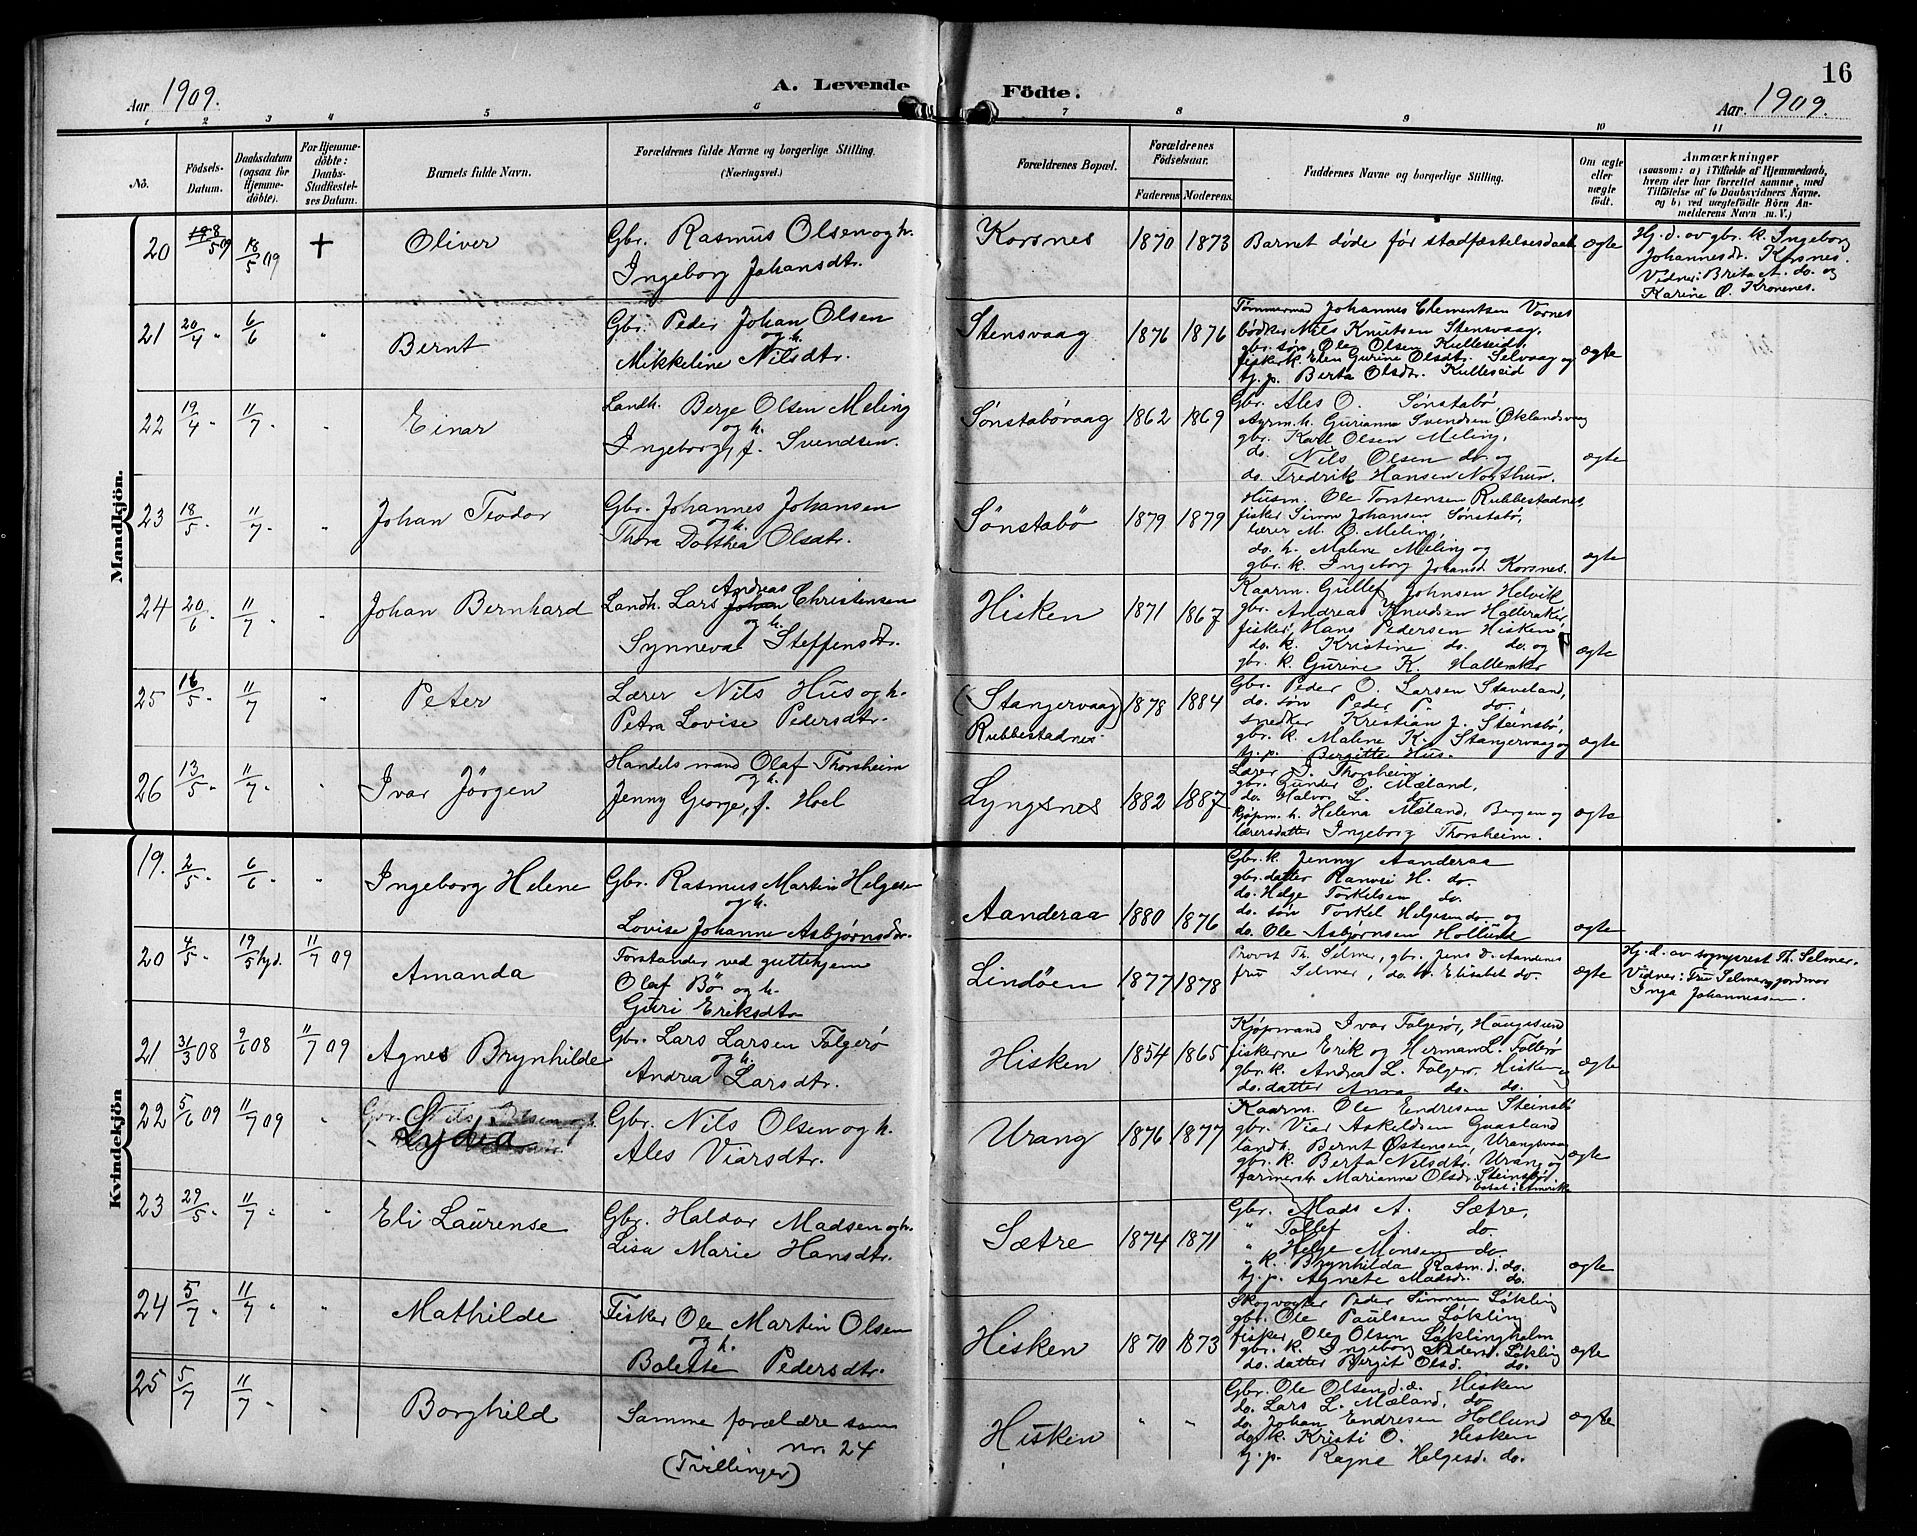 16
Aar 1909.
A. Levende Födte.
Aar. 1909.
1 2 3 4 5 6 7 8 9 10 11
No.
Födsels-Datum.
Daabsdatum (ogsaa for Hjemmedöbte).
For Hjemmedöbte: Daabs-Stadfæstelses Datum.
Barnets fulde Navn.
Forældrenes fulde Navne og borgerlige Stilling.
(Næringsvei.)
Forældrenes Bopæl.
Forældrenes Födselsaar.
Faderens Moderens.
Faddernes Navne og borgerlige Stilling.
Om ægte eller uægte födt.
Anmærkninger
(saasom: a) i Tilfælde af Hjemmedaab, hvem der har forrettet samme, med Tilföielse af to Daabsvidners Navne, og b) ved uægtefödte Börn Anmelderens Navn m. V.)
Mandkjön.
20 8/5 09 18/5 09 + Oliver
Gbr. Rasmus Olsen og h.
Ingeborg Johansdtr.
Korsnes 1870 1873
Barnet døde før stadfæstelsesdaab ægte
Hj. d. av gbr. k. Ingeborg
Johannesdr. Korsnes.
Vidner: Brita A. do. og
Karine Ø. Kronenes.
21 20/4 " 6/6 " Bernt
Gbr. Peder Johan Olsen
og h.
Mikkeline Nilsdtr.
Stensvaag 1876 1876
Tømmermd Johannes Clementsen Vornes
bødker Nils Knutsen Stensvaag,
gbr. søn Ole Olsen Kulleseid,
fisker k. Elen Gurine Olsdtr. Selvaag og
tj. p. Berta Olsdtr. Kulleseid
ægte
22 19/4 11/7 " Einar
Landh. Berje Olsen Meling
og h.
Ingeborg, f. Svendsen.
Sønstabøvaag 1862 1869
Gbr. Ales O. Sønstabø
styrm. h. Gurianna Svendsen Øklandsvaag
gbr. Karl Olsen Meling,
do. Nils Olsen do. og
do. Fredrik Hansen Northun.
ægte
23 18/5 " 11/7 " Johan Teodor
Gbr. Johannes Johansen
og h.
Thora Dorthea Olsdtr.
Sønstabø 1879 1879
Husm. Ole Torstensen Rubbestadnes,
fisker Simon Johansen Sønstabø,
lærer M. O. Meling,
do. h. Malene Meling og
gbr. k. Ingeborg Johansd. Korsnes.
ægte
24 20/6 " 11/7 " Johan Bernhard
Andreas
Landh. Lars Johan Christensen
og h.
Synneva Steffensdtr.
Hisken 1871 1867
Kaarm. Gullef Johnsen Helvik
gbr. Andreas Knudsen Halleraker,
fisker Hans Pedersen Hisken,
do. k. Kristine do. do. og
gbr. k. Gurine K. Halleraker
ægte
25 16/5 " 11/7 " Peter
Lærer Nils Hus og h.
Petra Lovise Pedersdtr.
(Stangervaag)
Rubbestadnes
1878 1884
Gbr. Peder O. Larsen Staveland,
do. søn Peder P. do.
snedker Kristian J. Steinsbø,
gbr. k. Malene K. Stangervaag og
tj. p. Birgitte Hus.
ægte
26 13/5 " 11/7 " Ivar Jørgen
Handelsmand Olaf Thorsheim
og h.
Jenny George, f. Hoel
Lyngsnes 1882 1887
Lærer J. Thorsheim.
gbr. Gunder O. Mæland,
do. Halvor L. do.
kjøpm. h. Helena Mæland, Bergen og
lærersdatter Ingeborg Thorsheim.
ægte
Kvindekjön
19. 2/5 " 6/6 " Ingeborg Helene
Gbr. Rasmus Martin Helgesen
og h.
Lovise Johanne Asbjørnsdtr.
Aanderaa 1880 1876
Gbr. k. Jenny Aanderaa
gbr. datter Ranvei H. do.
do. Helge Torkelsen do.
do. søn Torkel Helgesen do. og
do. Ole Asbjørnsen Hollund
ægte
20 4/5 " 19/5 hjd. 11/7 09 Amanda
Forstander ved guttehjem
Olaf Bø og h.
Guri Eriksdtr.
Lindöen 1877 1878
Provst Th. Selmer, gbr. Jens D. Aandenes
fru Selmer, do. h. Elisabet do.
ægte
Hj. d. av sogneprest Th. Selmer.
Vidner: Fru Selmer og jordmor
Inga Johannessen.
21 31/3 08 9/6 08 11/7 09 Agnes Brynhilde
Gbr. Lars Larsen Folgerø
og h.
Andrea Larsdtr.
Hisken 1854 1865
Kjøpmand Ivar Folgerø, Haugesund
fiskerne Erik og Herman L. Folgerø
gbr. k. Andrea L. Folgerø, Hisken og
do. datter Anna do. do.
ægte
22 5/6 09 11/7 09 " Lydia
Gbr. Nils Olsen og h.
Ales Viarsdtr.
Urang 1876 1877
Kaarm. Ole Endresen Steinsbø
gbr. Viar Askildsen Gaasland
landh. Bernt Østensen, Urangsvaag
gbr. k. Berta Nilsdtr. Urang og
farmerstr. Marianna Olsdr. Steinsbø
bosat i Amerika
ægte
23 29/5 " 11/7 " Eli Laurense
Gbr. Haldor Madsen og h.
Lisa Marie Hansdtr.
Sætre 1874 1871
Gbr. Mads A. Sætre,
" Tollef A. do.
" Helge Monsen do.
" k. Brynhilda Rasm.d. do.
tj. p. Agnete Madsd. do.
ægte
24 5/7 " 11/7 " Mathilde
Fisker Ole Martin Olsen
og h.
Bolette Pedersdtr.
Hisken 1870 1873
Skogvogter Peder Simonsen Løkling
gbr. Ole Paulsen Løkling
fisker Ole Olsen Løklingholm
gbr. k. Ingeborg Pedersd. Løkling
do. datter Bergit Olsd. do.
ægte
25 5/7 11/7 " Borghild
Samme forældre som
nr. 24
(Tvillinger)
Hisken " "
Gbr. Ole Olsen d. æ. Hisken
do. Lars L. Mæland, do.
do. Johan Endresen Hollund
do. k. Kristi O. Hisken
tj. p. Ragne Helgesd. do.
ægte